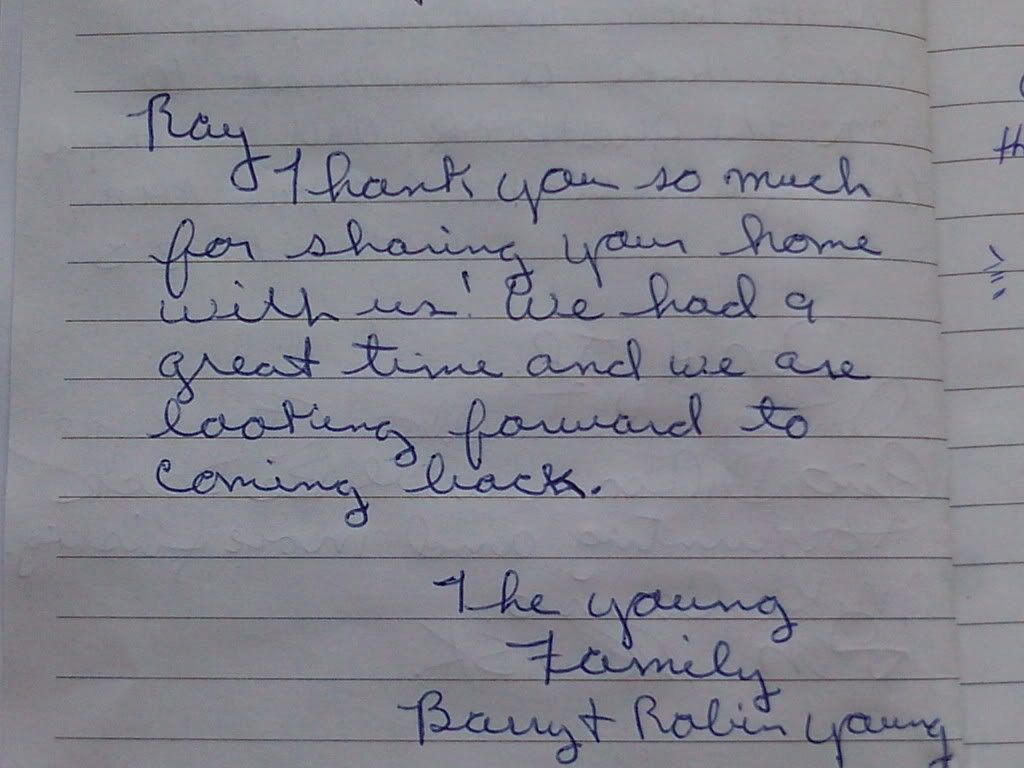 Ray
Thank you so much
for sharing your home
with us! We had a
great time and we are
looking forward to
coming back.
The young
Family
Barry + Robin young